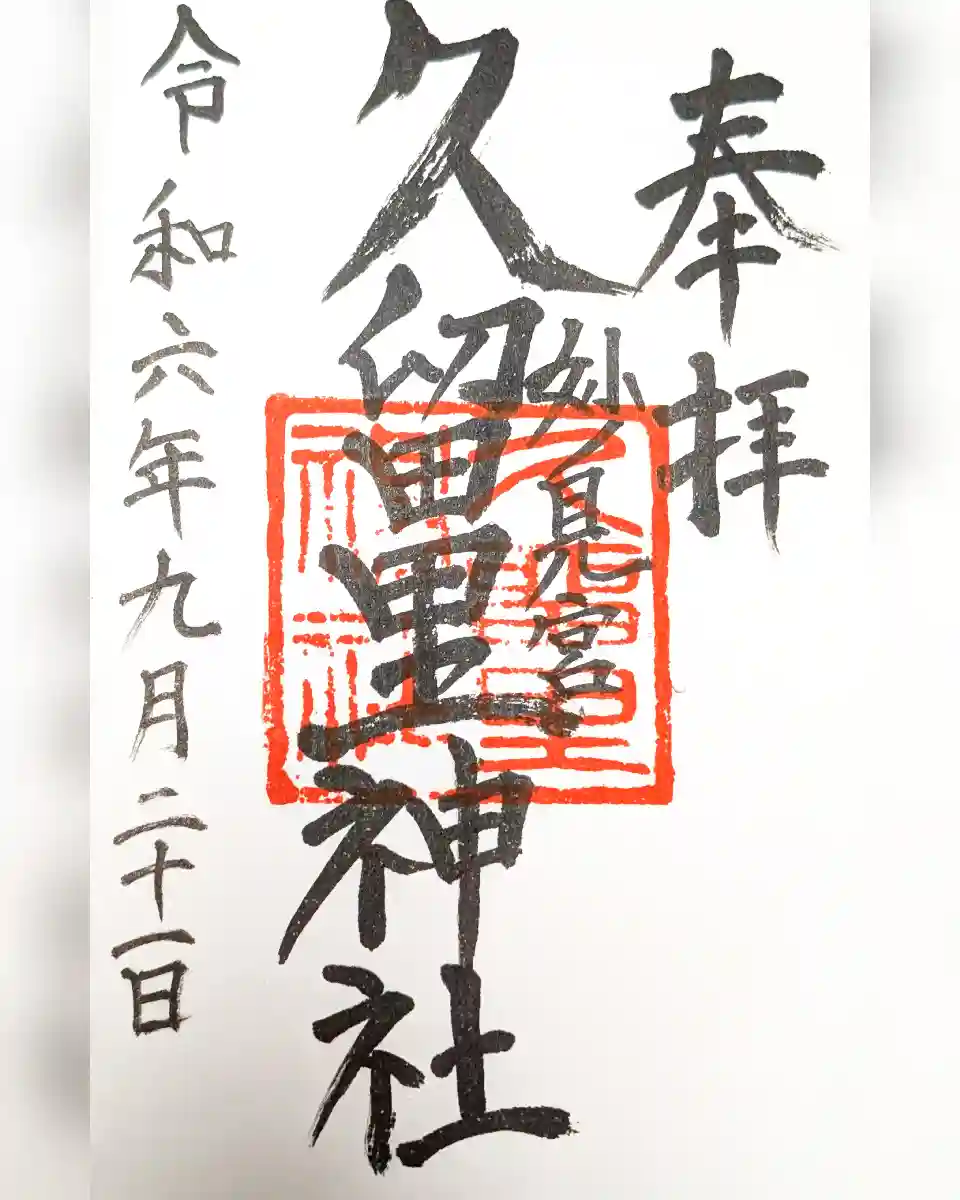 奉拝
妙見宮
久留里神社
久留里神社
令和六年九月二十一日